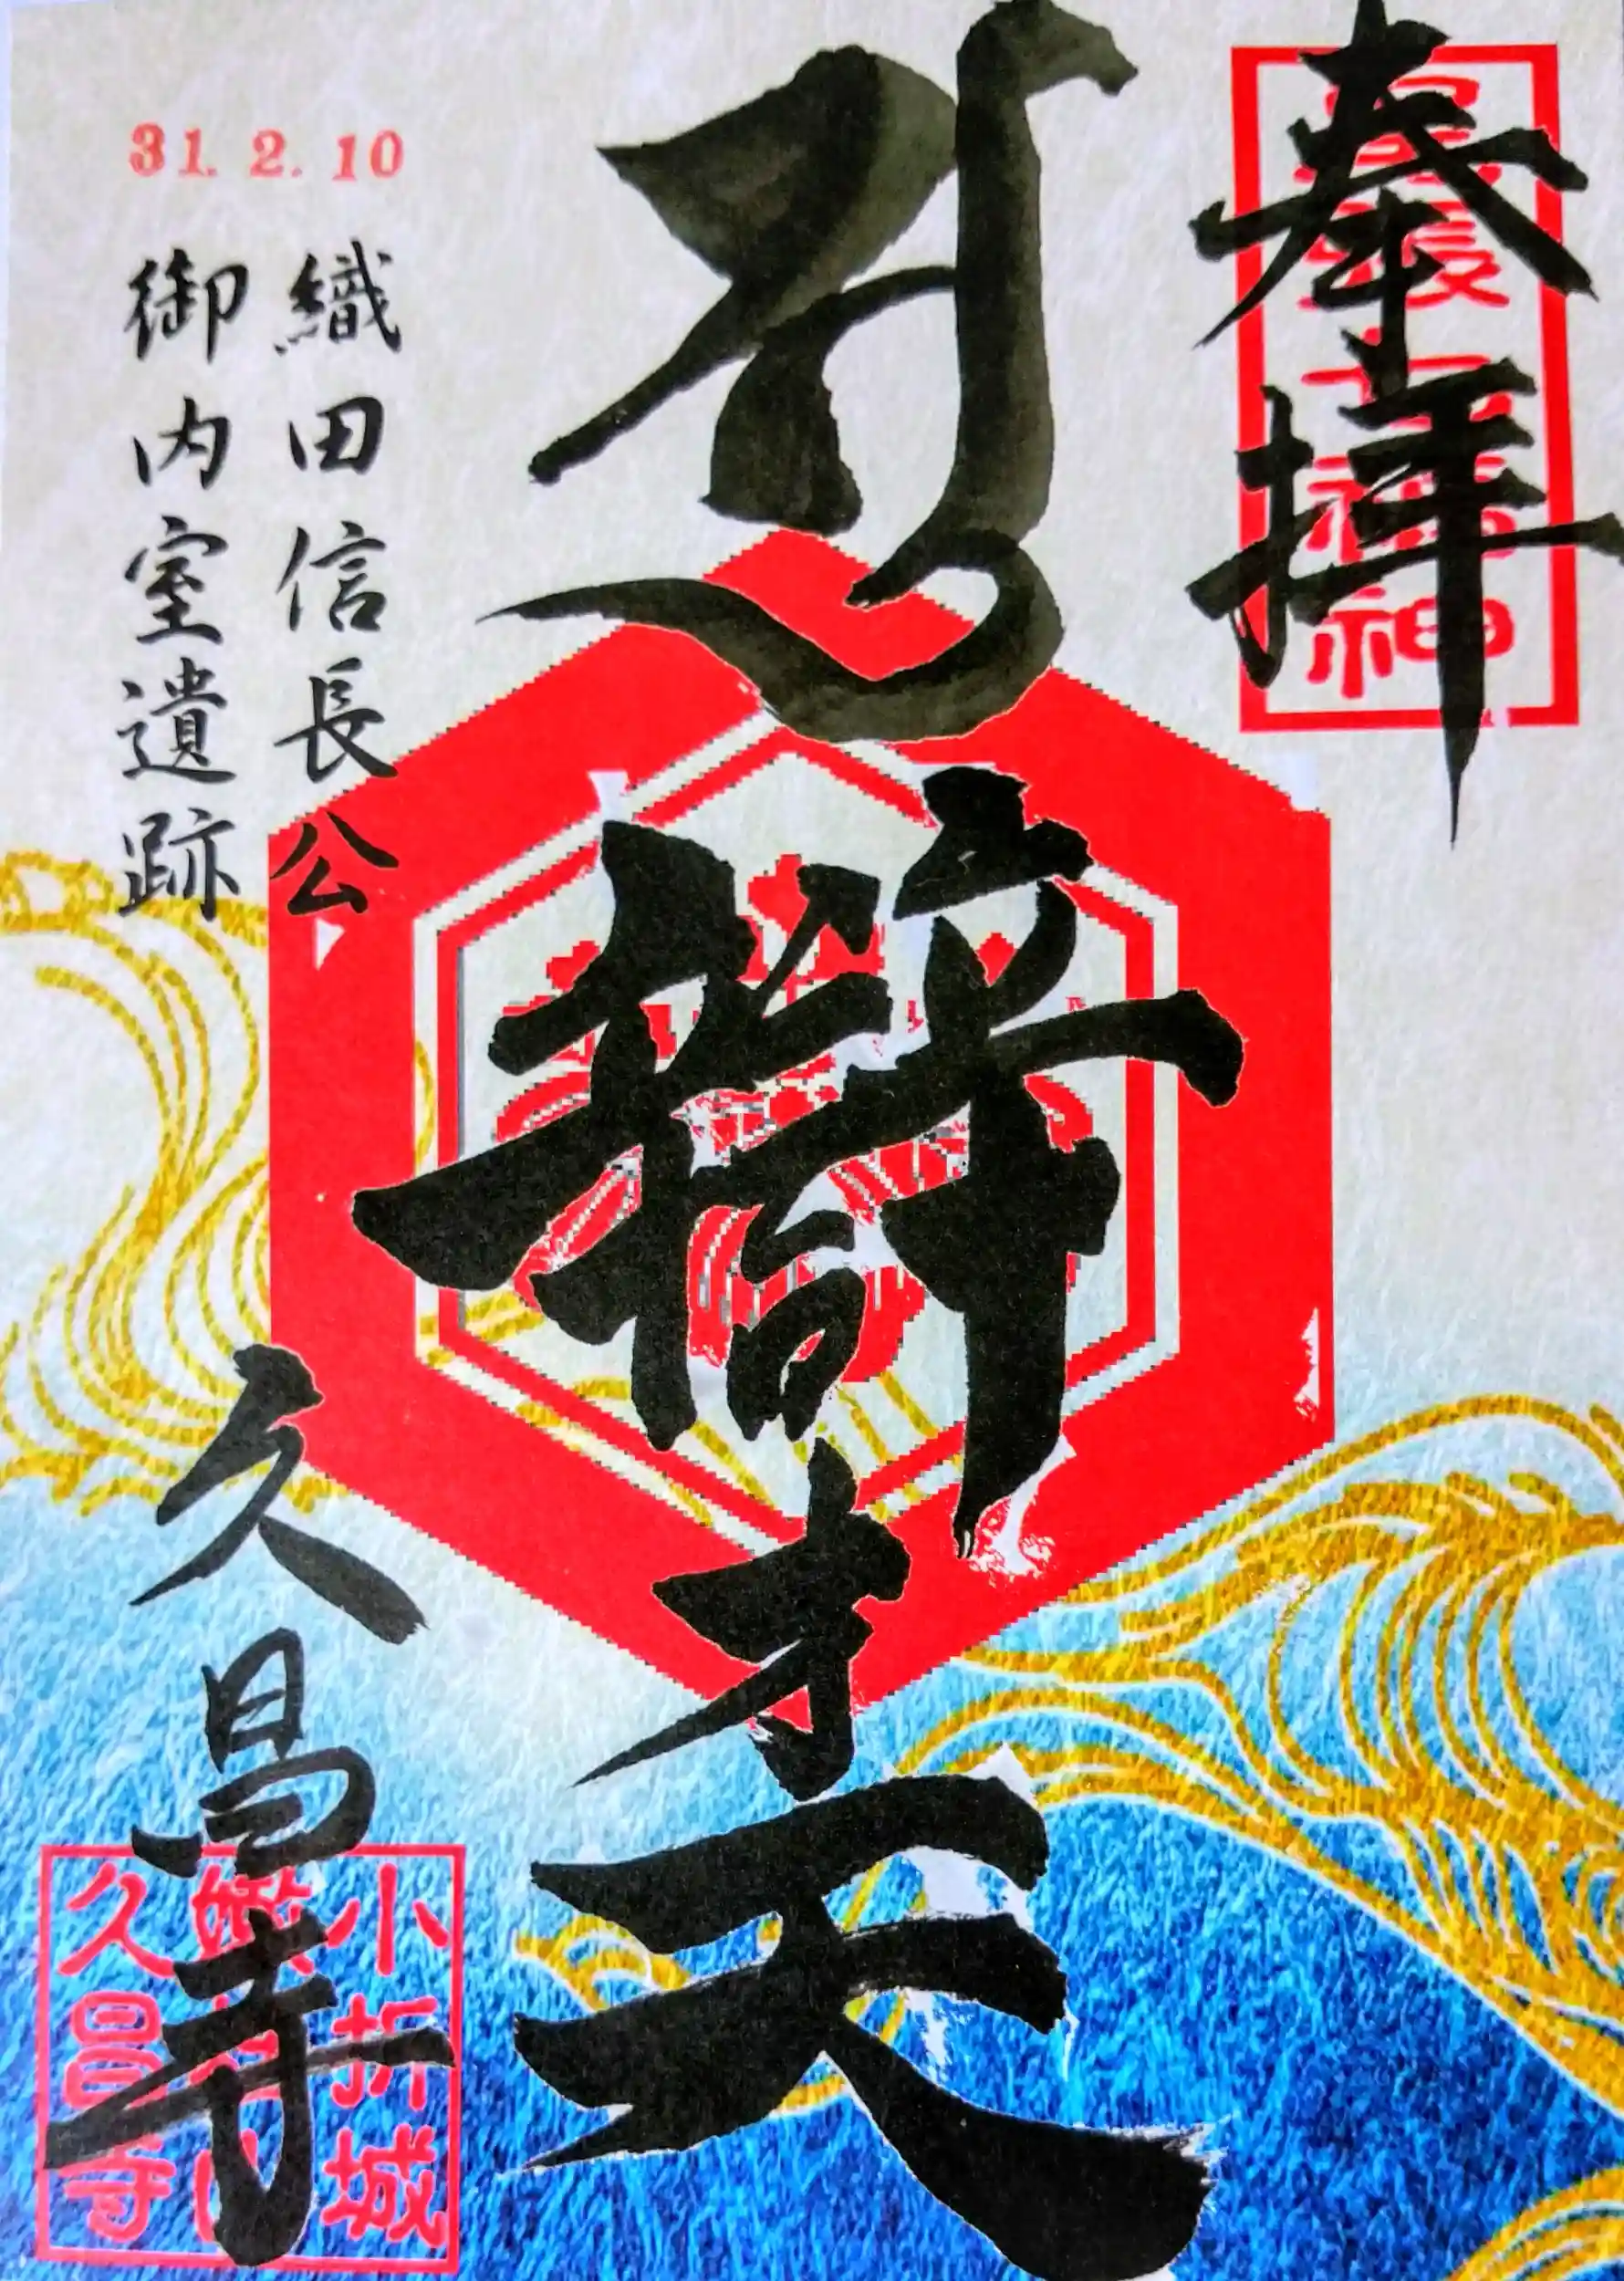 奉拝
尾張七福神
辯才天
31. 2. 10
織田信長公
御内室遺跡
久昌寺
小折城
久昌寺